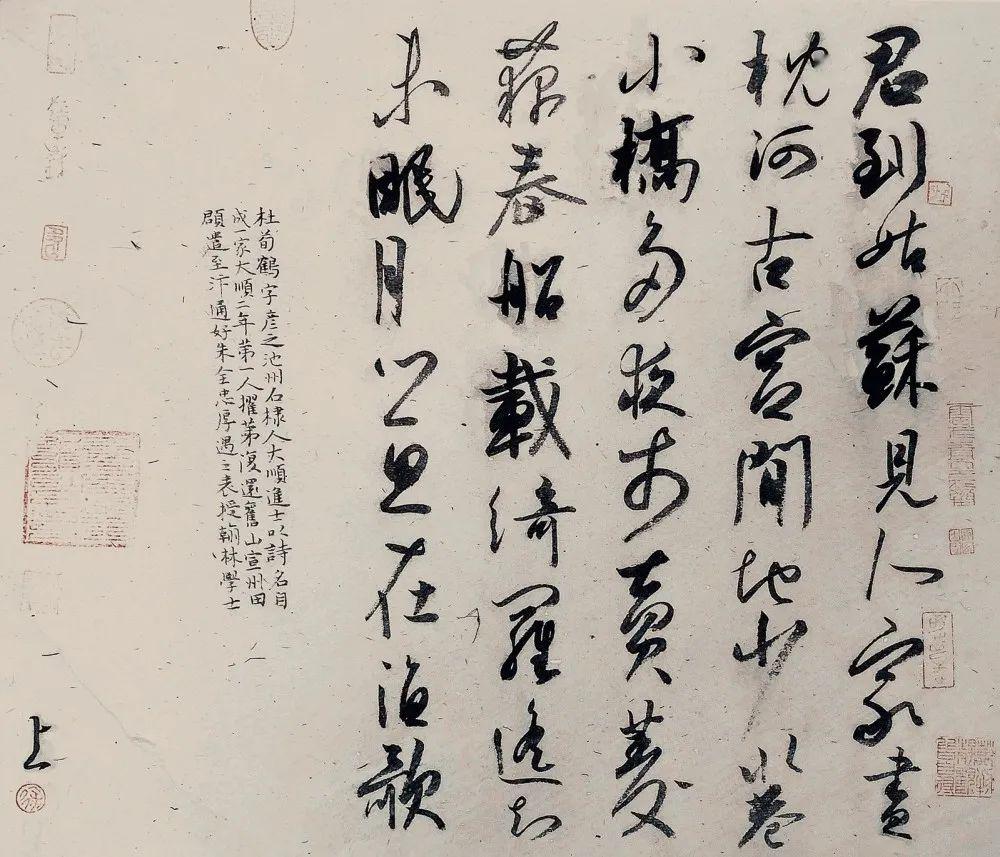 君到姑蘇見人家盡
枕河古宮閒地少水巷
小橋多夜市賣菱
藕春船載綺羅遙知
未眠月鄉思在漁歌
杜荀鶴字彦之池州石棣人大順進士以詩名自
成一家大順二年第一人擢第復還舊山宣州田
頵遣至汴通好朱全忠厚遇之表授翰林學士
上